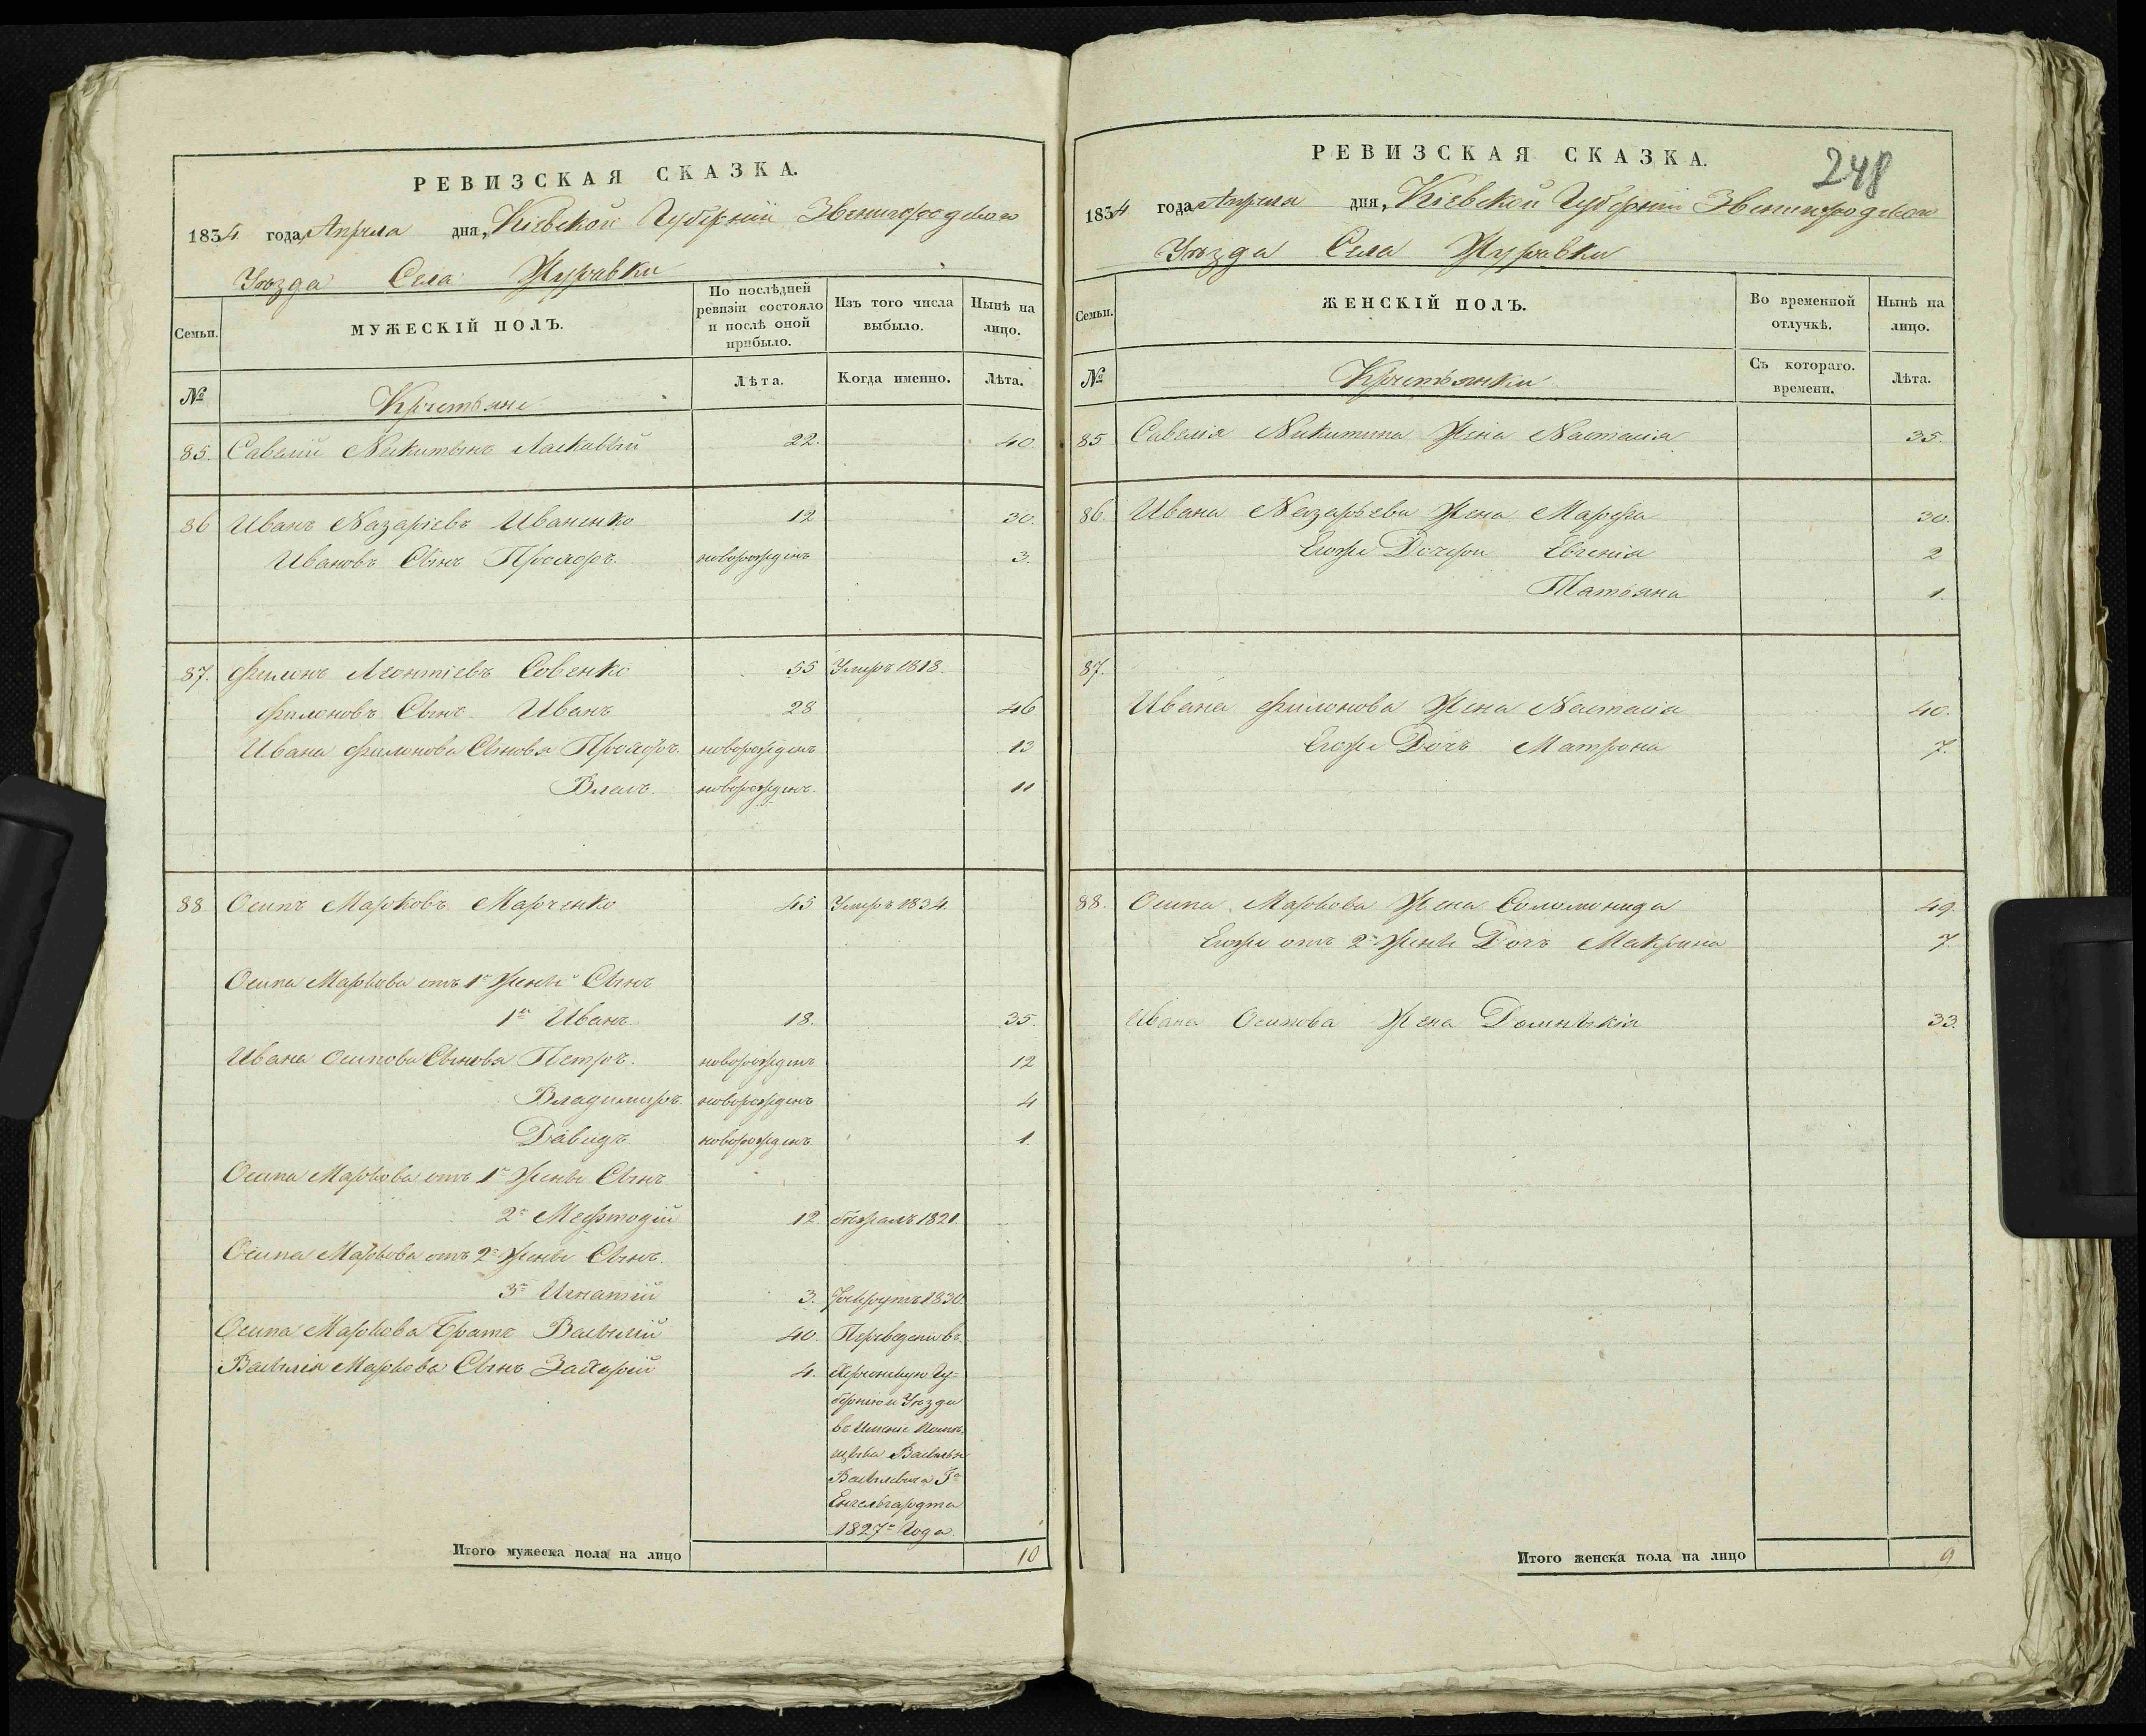 РЕВИЗСКАЯ СКАЗКА.
1834 года Апреля дня, Кіевской Губерніи Звенигородскаго
Уѣзда Села Журавки
Семьи.
МУЖЕСКІЙ ПОЛЪ.
По послѣдней ревизіи состояло и послѣ оной прибыло.
Изъ того числа выбыло.
Нынѣ на лицо.
№
Крестьяне
Лѣта.
Когда именно.
Лѣта.
85. Савелій Никитинъ Ласкавый 22. 40.
86 Иванъ Назаріевъ Иваненко 12 30.
Ивановъ Сынъ Прохоръ. новорожденъ 3.
87. Филонъ Леонтіевъ Совенко 55 Умеръ 1818.
Филоновъ Сынъ Иванъ 28 46
Ивана Филонова Сыновя Прохоръ новорожденъ 13
Власъ новорожденъ. 11
88 Осипъ Марковъ Марченко 45 Умеръ 1834.
Осипа Маркова отъ 1й Жены Сынъ
1й Иванъ 18. 35.
Ивана Осипова Сыновя Петръ. новорожденъ 12
Владимиръ. новорожденъ 4
Давидъ новорожденъ 1.
Осипа Маркова отъ 1й Жены Сынъ
2й Мефтодій 12. бежалъ 1821.
Осипа Маркова отъ 2й Жены Сынъ.
3й Игнатій 3. Рекрутъ 1830.
Осипа Маркова Братъ Василий 40. Переведени въ
Василія Маркова Сынъ Захарій 4. Херсонскую Гу-
бернію и Уезда
въ Имение Поме-
щика Василья
Васильевича Гна
Енгельгардта
1827го Года.
Итого мужеска пола на лицо 10
248
РЕВИЗСКАЯ СКАЗКА.
1834 года Апреля дня, Кіевской Губерніи Звенигородскаго
Уѣзда Села Журавки
Семьи.
ЖЕНСКІЙ ПОЛЪ.
Во временной отлучкѣ.
Нынѣ на лицо.
№
Крестьянки
Съ котораго. времени.
Лѣта.
85 Савелія Никитина Жена Настасія 35.
86. Ивана Назарьева Жена Марфа 30.
Егоже Дочери Евгенія 2
Татьяна 1.
87.
Ивана Филонова Жена Настасія 40.
Егоже Дочъ Матрона 7.
88. Осипа Маркова Жена Соломонида 49.
Егоже отъ 2й Жены Дочъ Макрина 7
Ивана Осипова Жена Домникія 33.
Итого женска пола на лицо 9